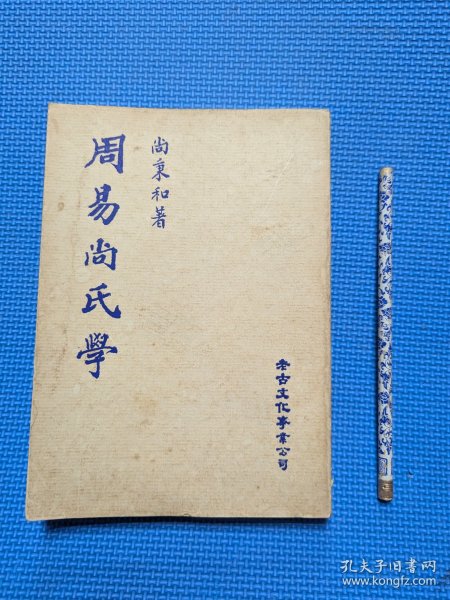 周易尚氏學
尚秉和著
老古文化事業公司
孔夫子旧书网
www.kongfz.com